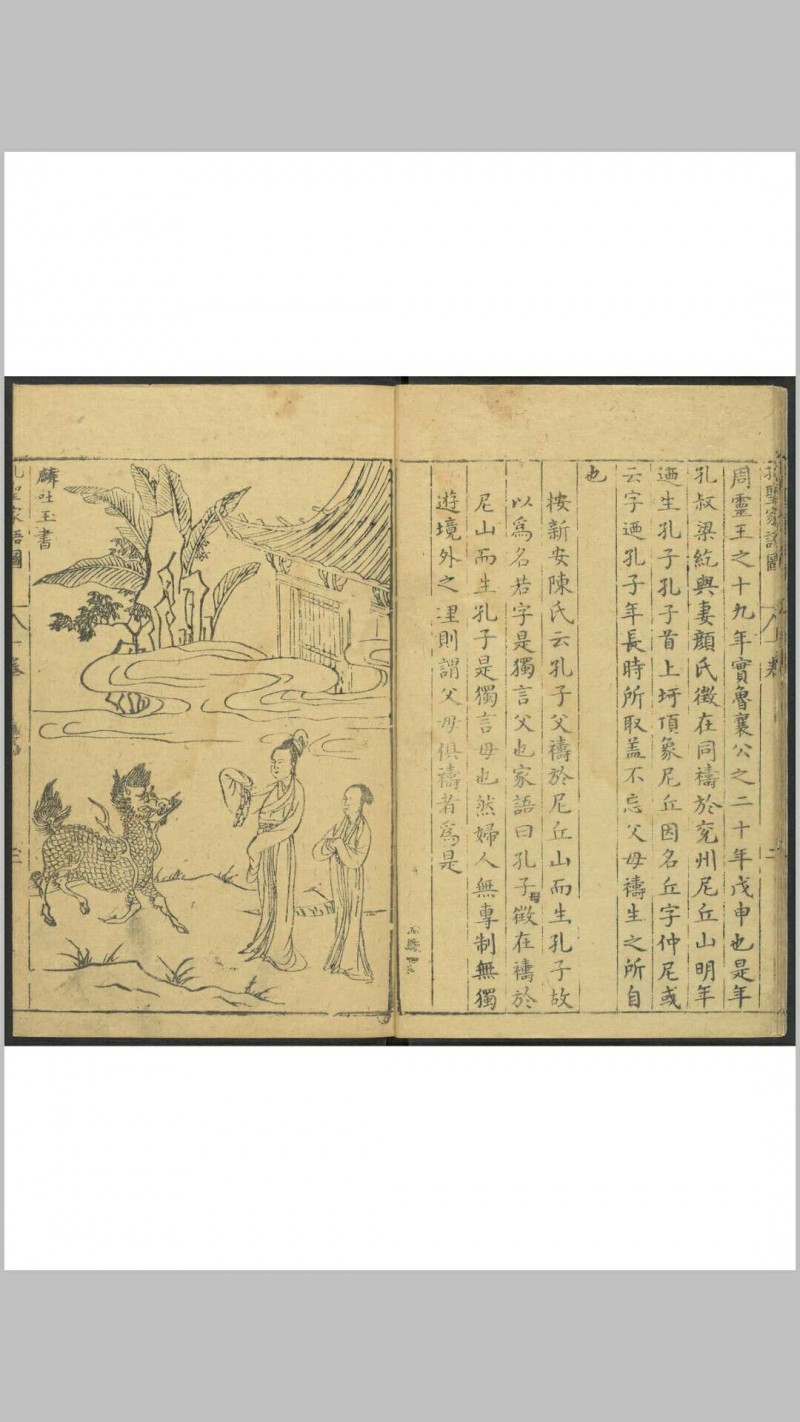 孔聖家語圖
一卷
二
周靈王之十九年實魯襄公之二十年戊申也是年
孔叔梁紇與妻顏氏徵在同禱於兖州尼丘山明年
迺生孔子孔子首上圩頂象尼丘因名丘字仲尼或
云字迺孔子年長時所取盖不忘父母禱生之所自
也
按新安陳氏云孔子父禱於尼丘山而生孔子故
以爲名若字是獨言父也家語曰孔子母徵在禱於
尼山而生孔子是獨言母也然婦人無專制無獨
遊境外之理則謂父母俱禱者爲是
麟吐玉書
孔聖家語圖
一卷
三